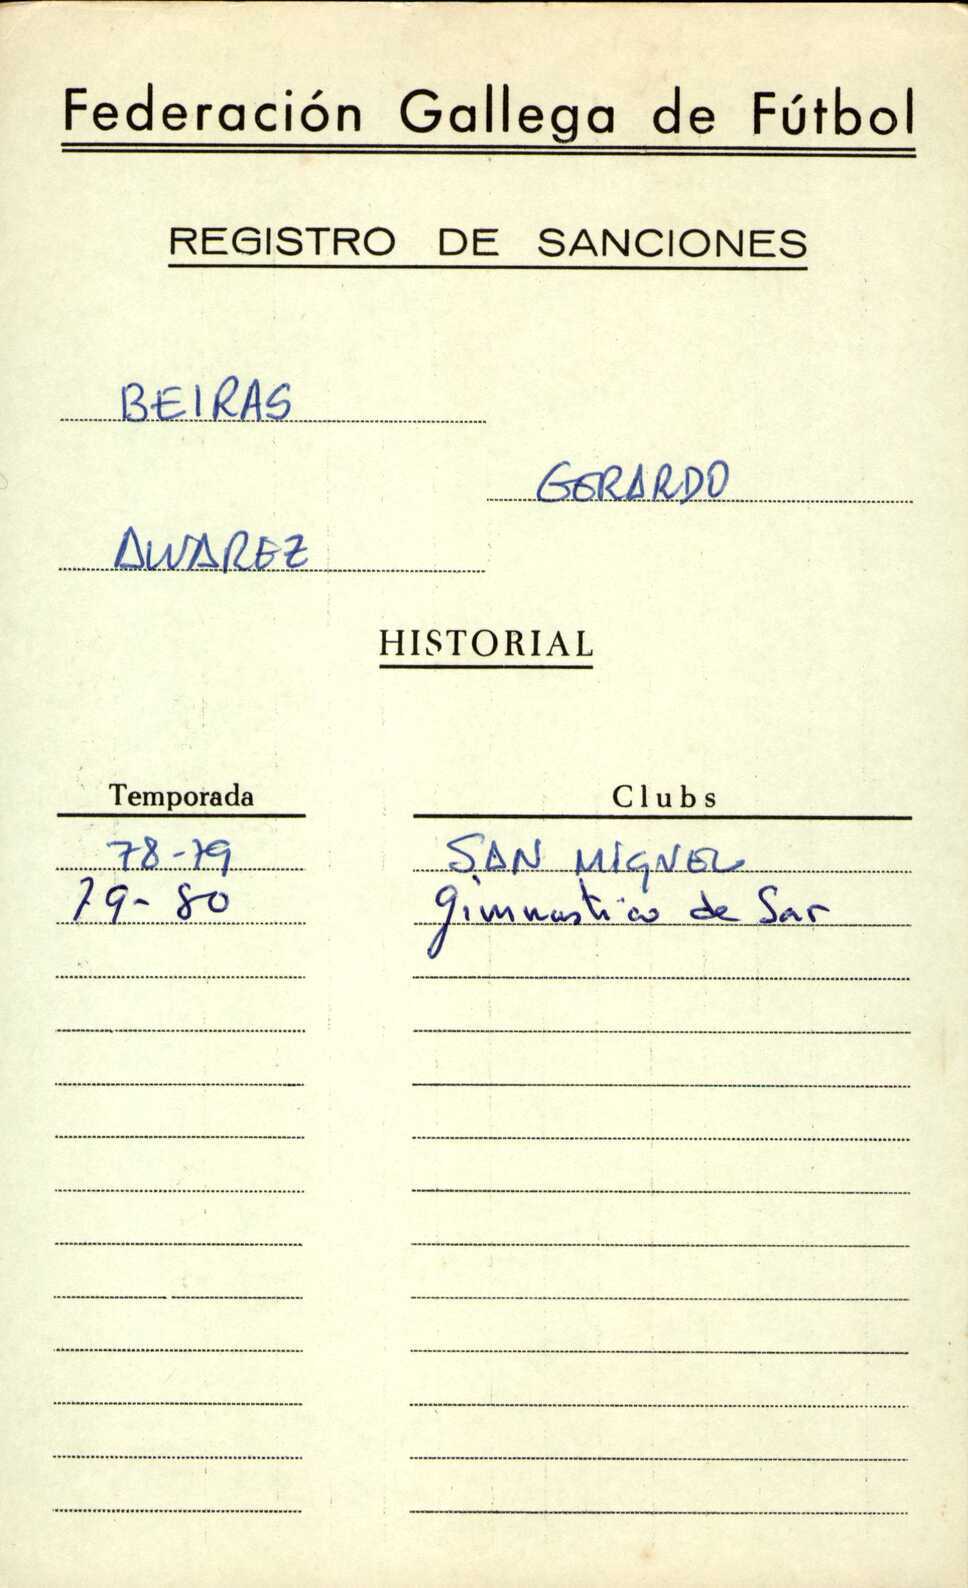 Federación Gallega de Fútbol
REGISTRO DE SANCIONES
BEIRAS
GERARDO
ALVAREZ
HISTORIAL
Temporada Clubs
78-79 SAN MIGUEL
79-80 Gimnastico de Sar